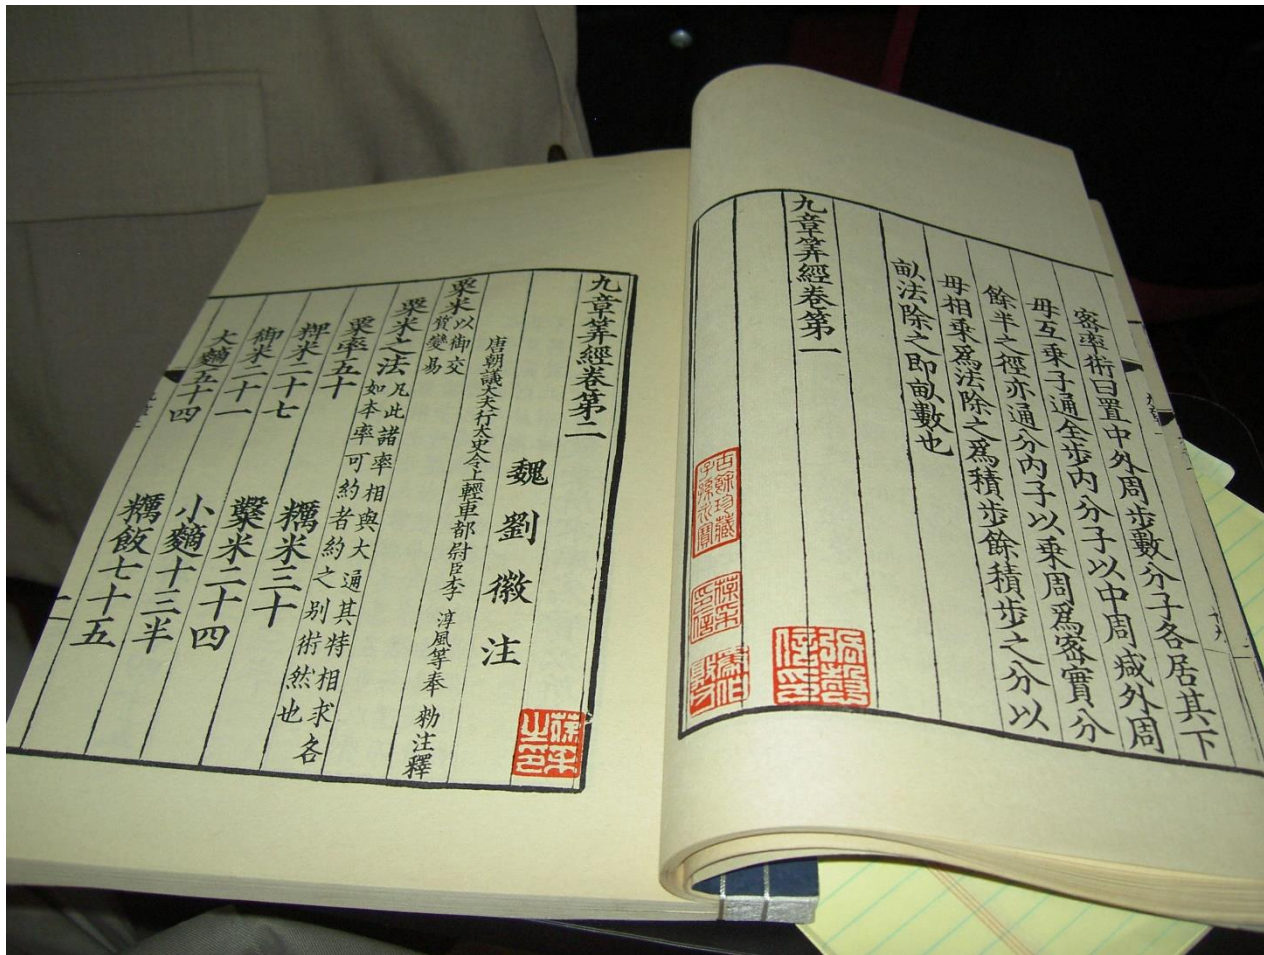 密率術曰置中外周步數分子各居其下
母互乘子通全步內分子以中周減外周
餘半之徑亦通分內子以乘周爲密實分
母相乘爲法除之爲積步餘積步之分以
畝法除之即畝數也
九章筭經卷第一
九章筭經卷第二
魏劉徽注
唐朝議大夫行太史令上輕車都尉臣李淳風等奉勑注釋
粟米以御交質變易
粟米之法凡此諸率相與大通其特相求各如本率可約者約之别術然也
粟率五十
糲米三十
粺米二十七
糳米二十四
御米二十一
小䵂十三半
大䵂五十四
糲飯七十五